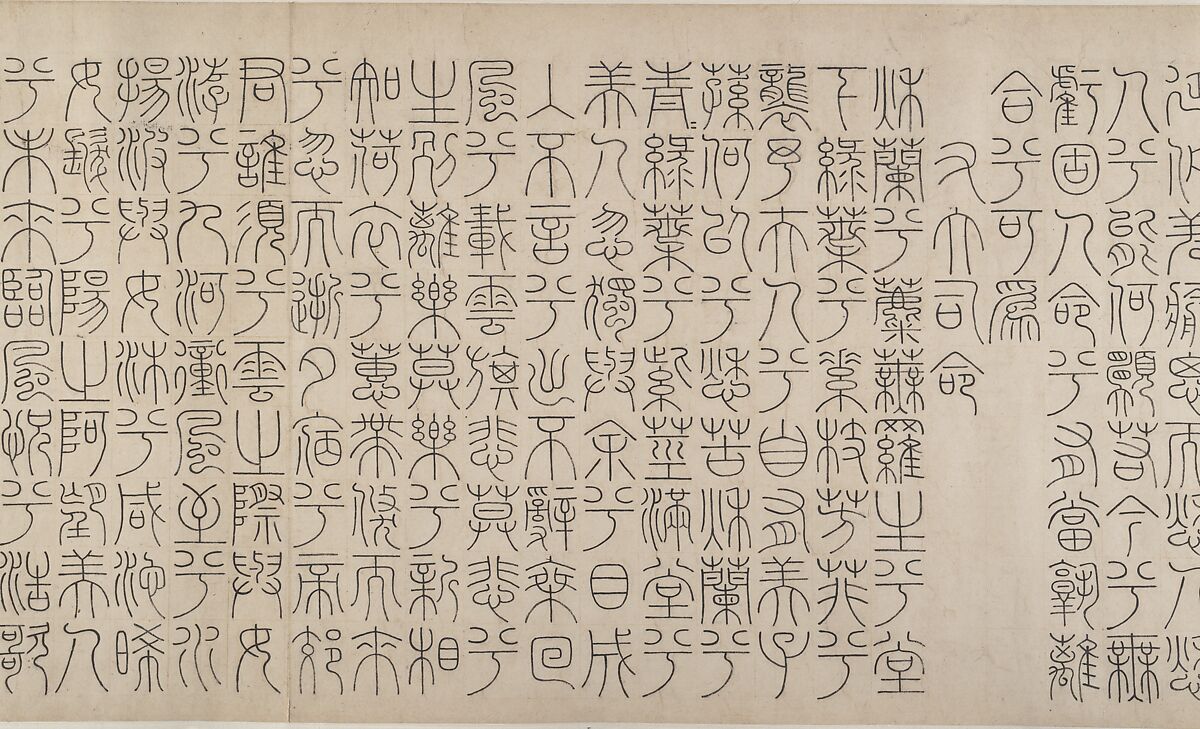 延佇羌愈思而愁人愁
人兮能何願若今兮無
虧固人命兮有當孰離
合兮可為
右大司命
秋蘭兮蘪蕪羅生兮堂
下綠葉兮素枝芳菲兮
襲予夫人兮自有美子
蓀何以兮愁苦秋蘭兮
青綠葉兮紫莖滿堂兮
美人忽獨與余兮目成
入不言兮出不辭乘回
風兮載雲旗悲莫悲兮
生別離樂莫樂兮新相
知荷衣兮蕙帶倏而來
兮忽而逝夕宿兮帝郊
君誰須兮雲之際與女
游兮九河衝風至兮水
揚波與女沐兮咸池晞
女髮兮陽之阿望美人
兮未來臨風怳兮浩歌